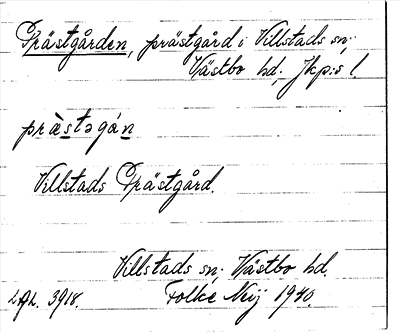 Prästgården, prästgård i Villstads sn;
Västbo hd; Jkp:s l.
prὰstəgán
Villstads Prästgård.
Villstads sn; Västbo hd.
3918. Folke Nij 1940.